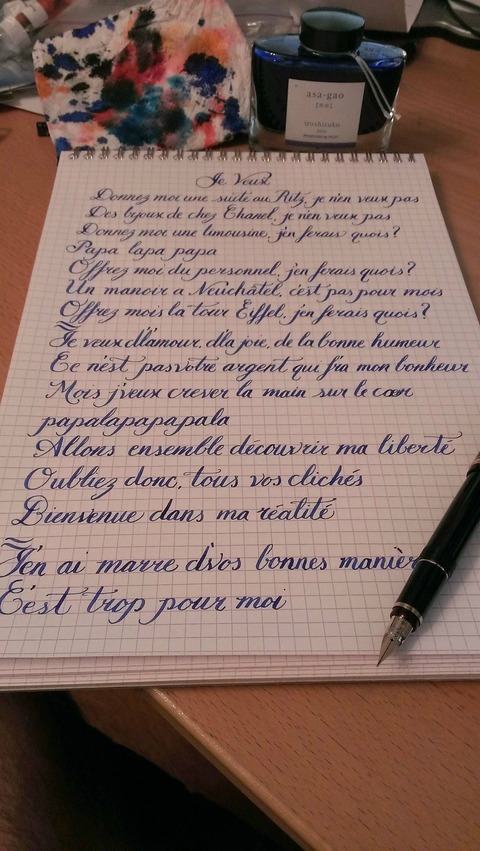 asa-gao
iroshizuku
Je Veux
Donnez moi une suite au Ritz, je n'en veux pas
Des bijoux de chez Chanel, je n'en veux pas
Donnez moi une limousine, j'en ferais quoi?
Papa lapa papa
Offrez moi du personnel, j'en ferais quoi?
Un manoir a Neuchâtel, c'est pas pour mois
Offrez mois la tour Eiffel, j'en ferais quoi?
Je veux d'l'amour, d'la joie, de la bonne humeur
Ce n'est pas votre argent qui f'ra mon bonheur
Mois j'veux crever la main sur le cœr
papalapapapala
Allons ensemble découvrir ma liberté
Oubliez donc, tous vos clichés
Bienvenue dans ma réalité
J'en ai marre d'vos bonnes manièr
C'est trop pour moi